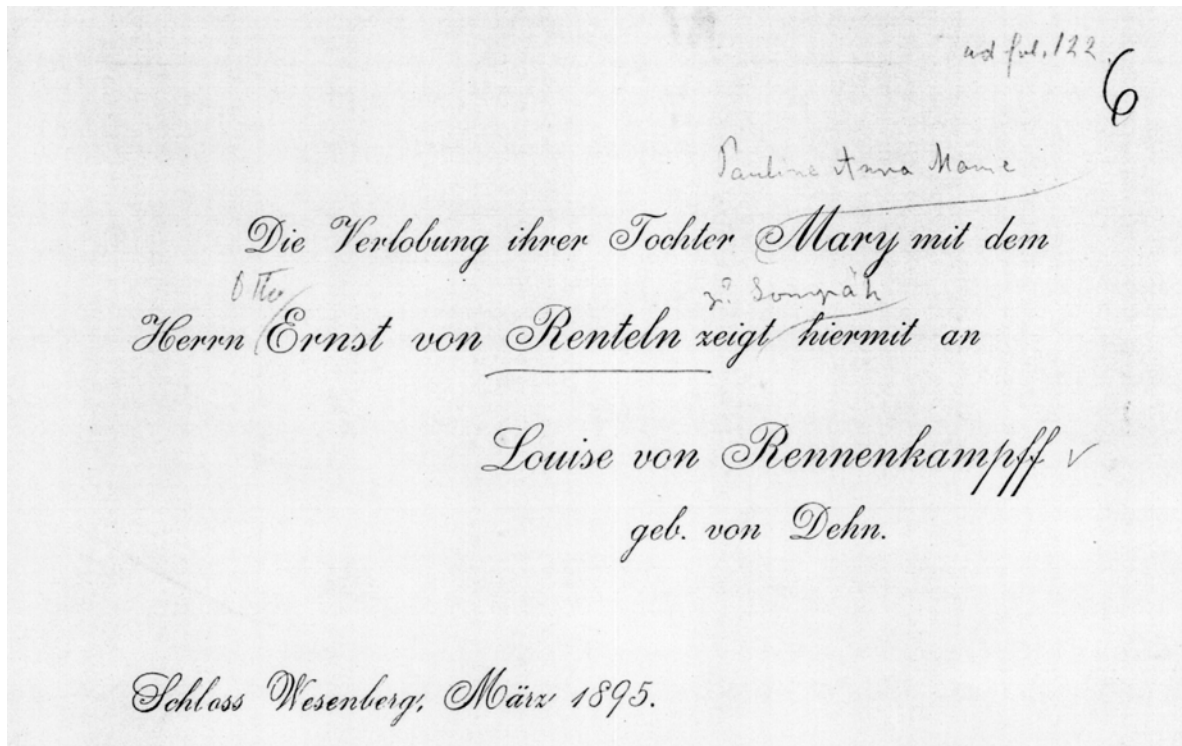 ad fol. 122.
6
Pauline Anna Marie
Die Verlobung ihrer Tochter Mary mit dem
Otto
Herrn Ernst von Renteln zeigt hiermit an
Louise von Rennenkampff
geb. von Dehn.
Schloss Wesenberg, März 1895.